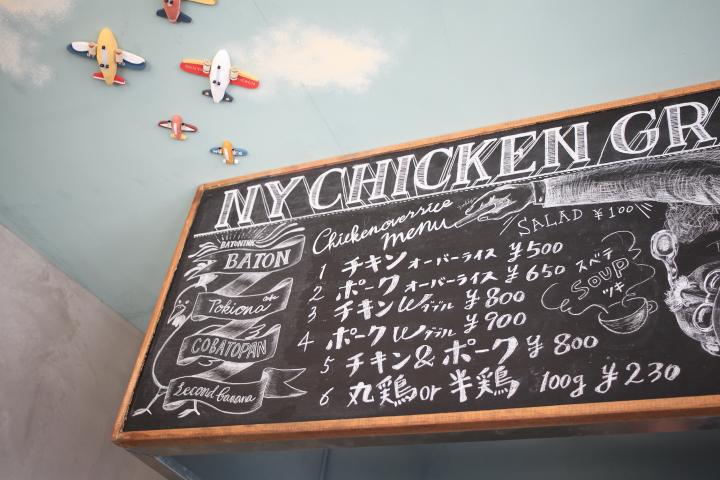 NY CHICKEN GR
Chickenoverrice
menu
SALAD ¥100
BATON
Pokiona
COBATOPAN
Second banana
1 チキン オーバーライス ¥500
2 ポーク オーバーライス ¥650
3 チキン W ダブル ¥800
4 ポーク W ダブル ¥900
5 チキン & ポーク ¥800
6 丸鶏 or 半鶏 100g ¥230
スベテ
SOUP
ツキ